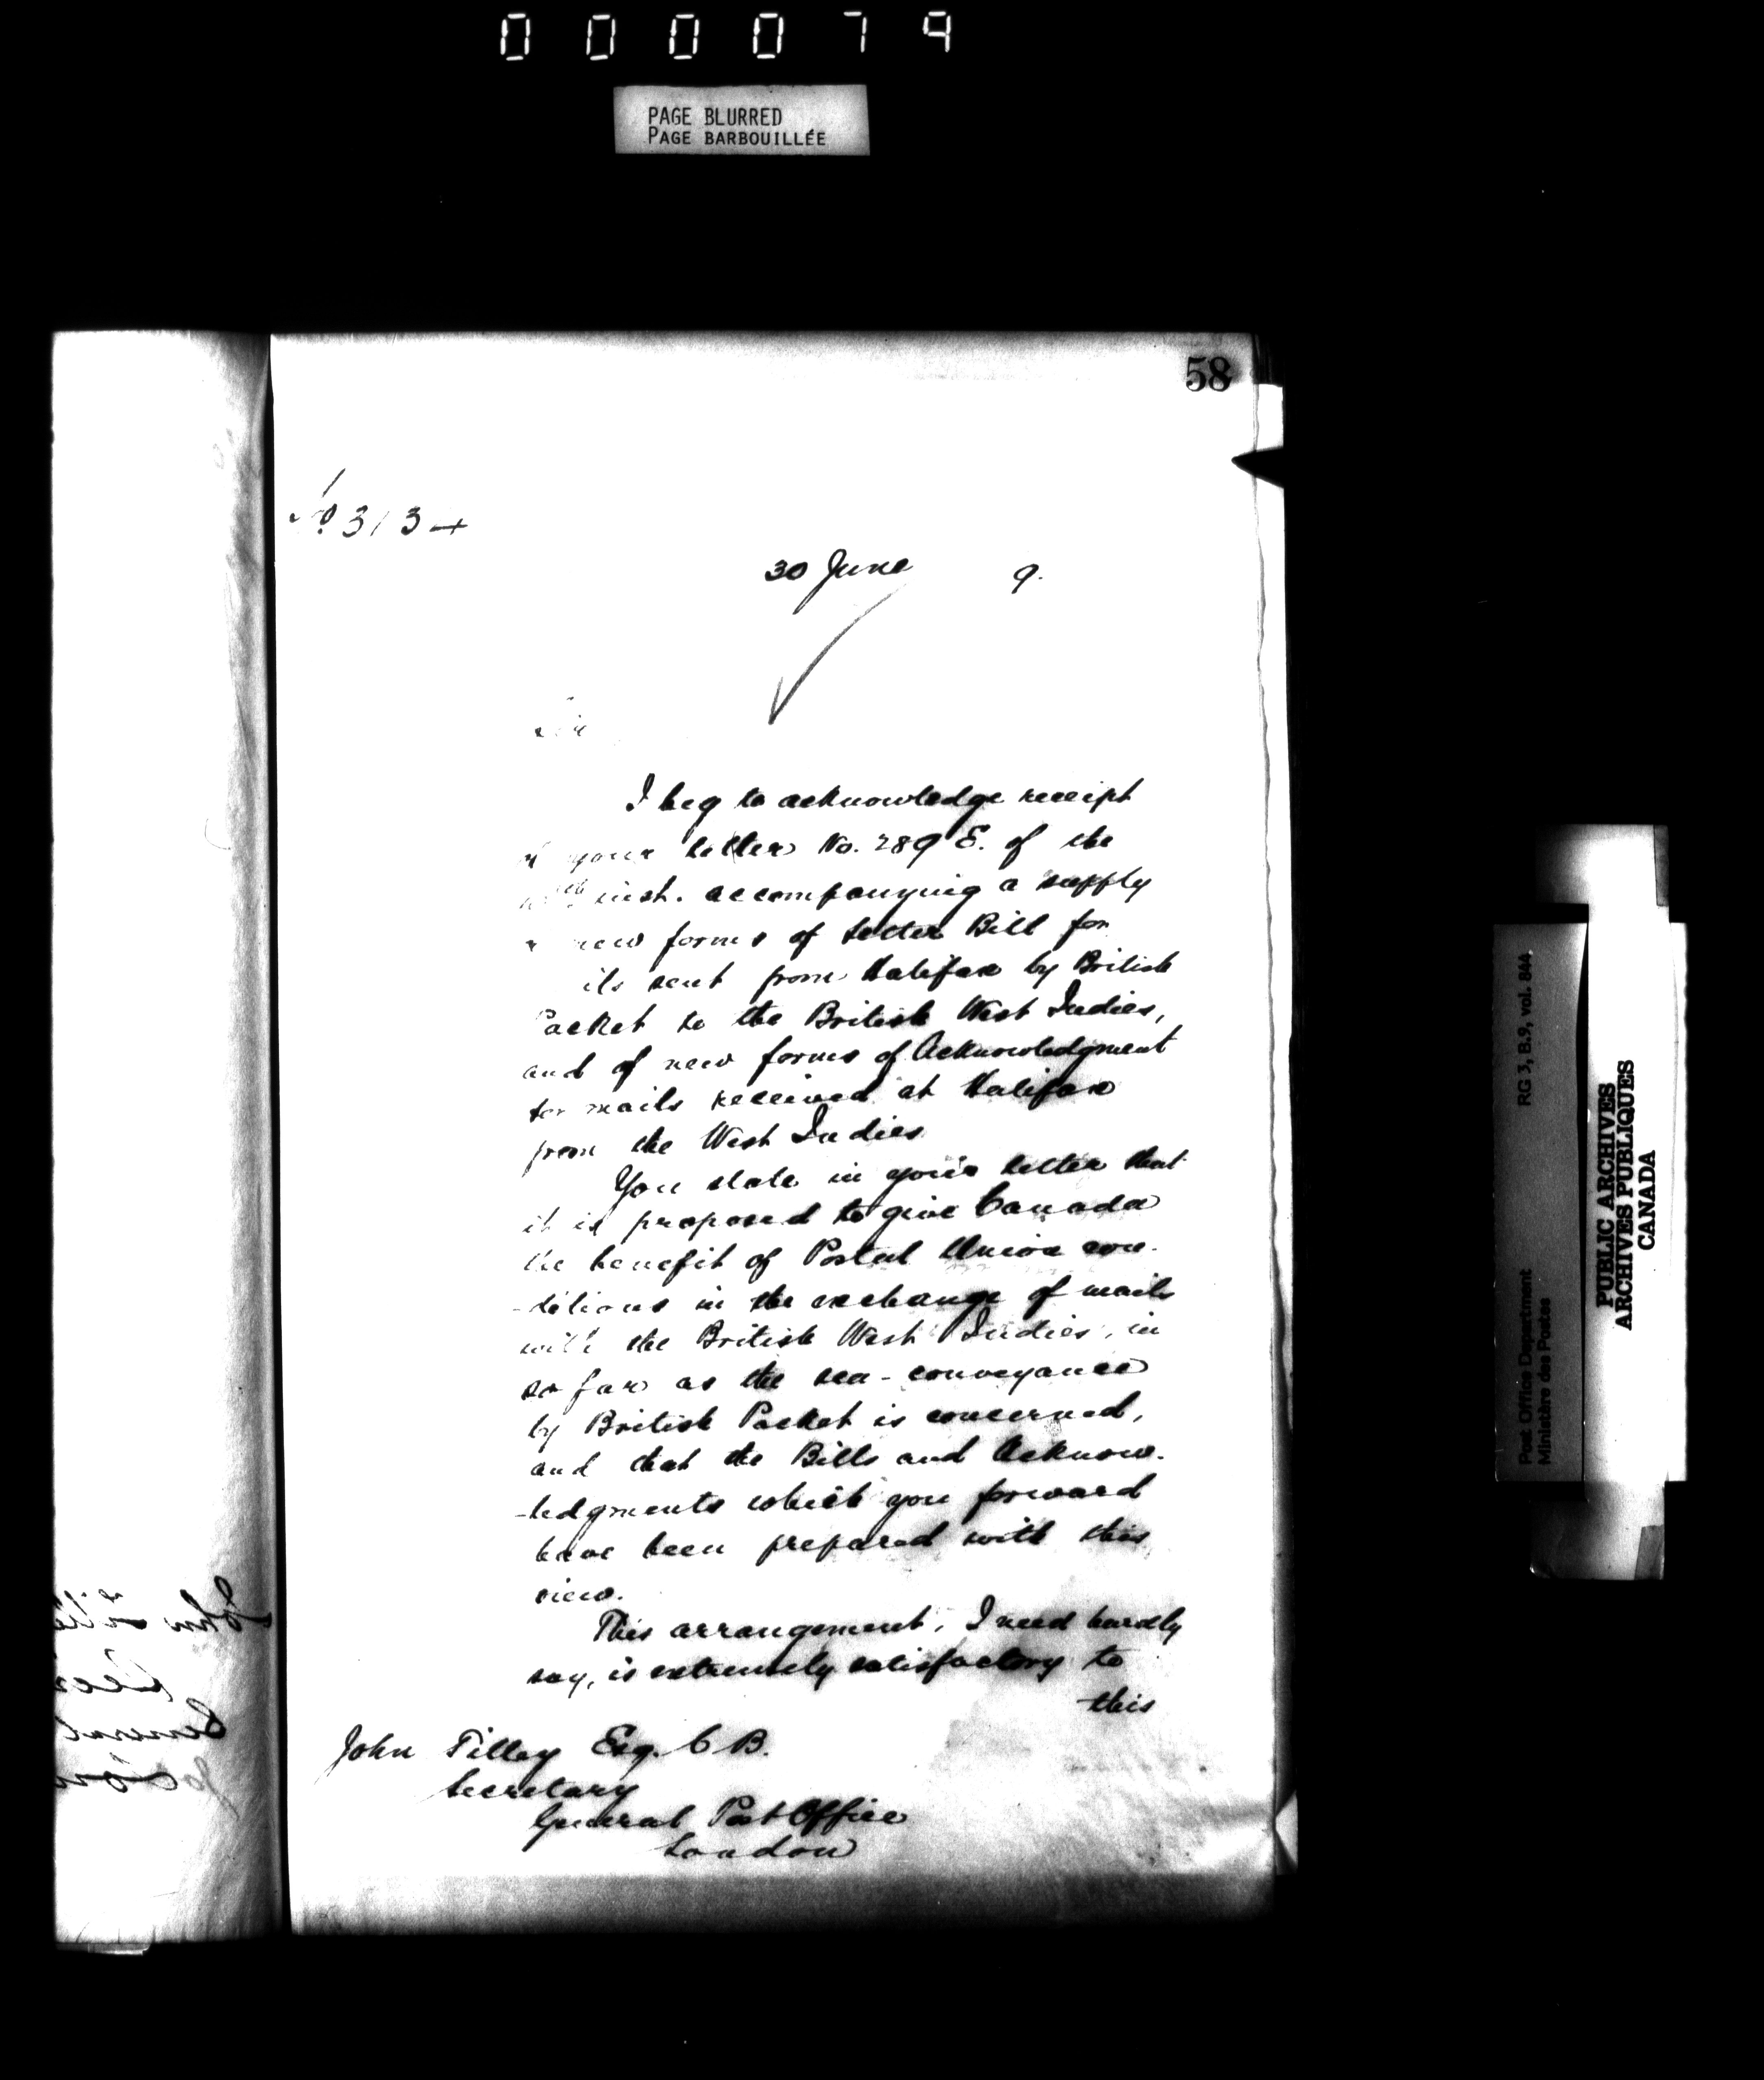 000079
PAGE BLURRED
PAGE BARBOUILLÉE
58
No 313
30 June 9.
Sir
I beg to acknowledge receipt
of your letter No. 289 E. of the
inst. accompanying a supply
new forms of Letter Bill for
ils sent from Halifax by British
Packet to the British West Indies,
and of new forms of Acknowledgment
for mails received at Halifax
from the West Indies
You state in your letter that
it is proposed to give Canada
the benefit of Postal Union con-
-ditions in the exchange of mails
with the British West Indies, in
so far as the sea-conveyance
by British Packet is concerned,
and that the Bills and Acknow-
-ledgments which you forward
have been prepared with this
view.
This arrangement, I need hardly
say, is extremely satisfactory to
this
John Tilley Esq. C B.
Secretary
General Post Office
London
RG 3, B.9, vol. 844
Post Office Department
Ministère des Postes
PUBLIC ARCHIVES
ARCHIVES PUBLIQUES
CANADA